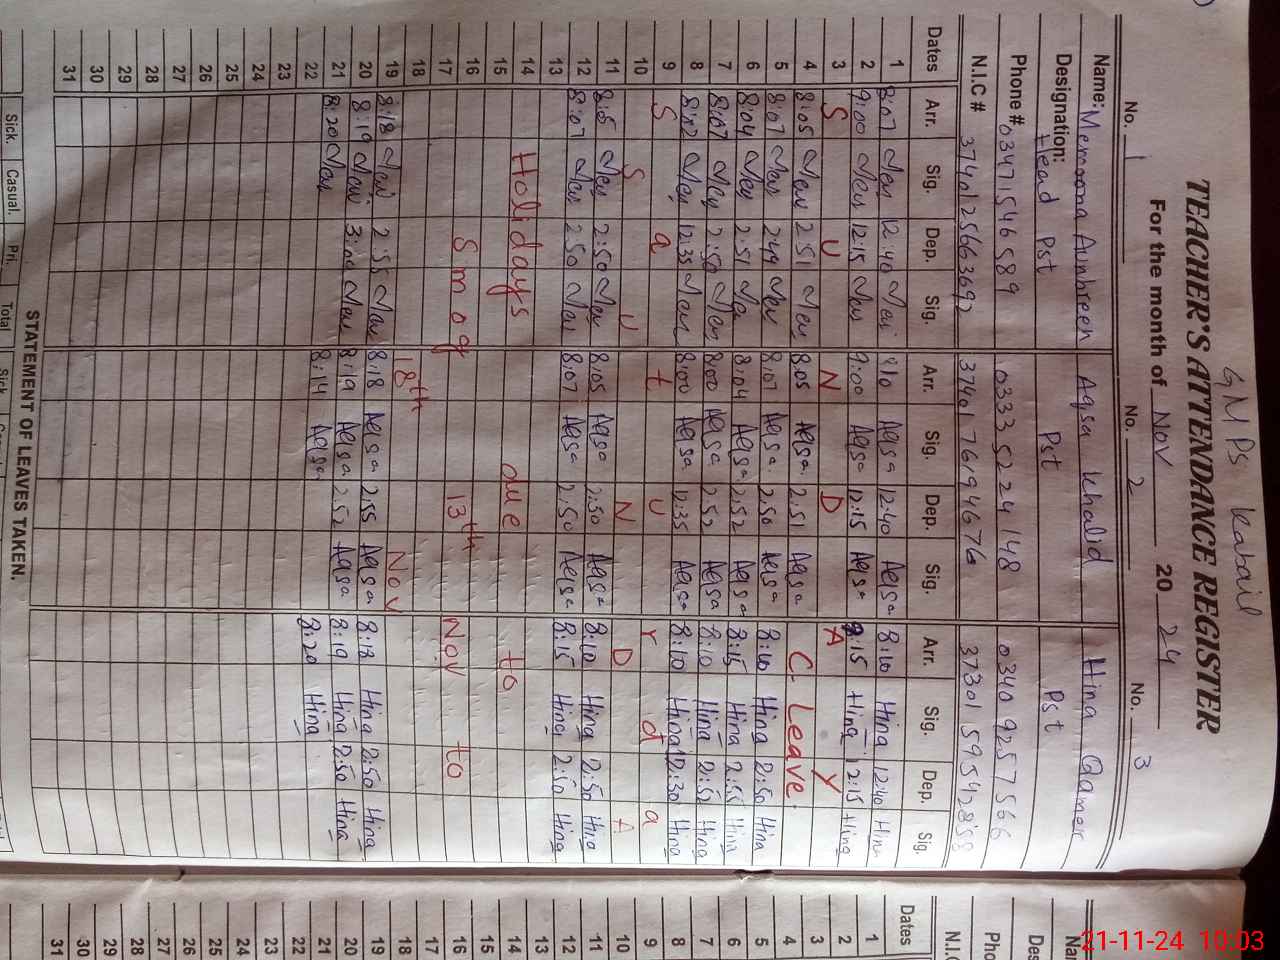 GMPs Kabail
TEACHER'S ATTENDANCE REGISTER
For the month of Nov 2024
No. 1 No. 2 No. 3
Name: Memoona Ambreen Aqsa Khalid Hina Qamer
Designation: Head Pst Pst Pst
Phone # 03471546589 0333 5224 148 0340 9257566
N.I.C # 3740125663692 37401 76194676
Dates Arr. Sig. Dep. Sig. Arr. Sig. Dep. Sig. Arr. Sig. Dep. Sig.
1 8:07 12:40 810 Aqsa 12:40 Aqsa 8:10 Hina 12:40 Hina
2 9:00 12:15 9:00 Aqsa 12:15 Aqsa 8:15 Hina 12:15 Hina
3 S U N D A Y
4 8:05 2 51 8:05 Aqsa 2.51 Aqsa C-Leave
5 8:07 2:49 8:07 Aqsa 2.50 Aqsa 8:10 Hina 2:50 Hina
6 8:04 2:51 8:04 Aqsa 2.52 Aqsa 8:15 Hina 2:55 Hina
7 8:07 2:50 8:00 Aqsa 2.52 Aqsa 8:10 Hina 2:52 Hina
8 8:02 12:35 8:00 Aqsa 12:35 Aqsa 8:10 Hina 12:30 Hina
9 S a t u r d a
10 S U N D A
11 8:05 2:50 8:05 Aqsa 2:50 Aqsa 8:10 Hina 2:50 Hina
12 8:07 2:50 8:07 Aqsa 2:50 Aqsa 8:15 Hina 2:50 Hina
13
14 Holidays due to
15
16 Smog 13th Nov to
17
18 18th Nov
19 8:18 2:55 8:18 Aqsa 2:55 Aqsa 8:18 Hina 2:50 Hina
20 8:19 3:00 8:19 Aqsa 2.52 Aqsa 8:19 Hina 2:50 Hina
21 8:20 8:14 Aqsa 8:20 Hina
22
23
24
25
26
27
28
29
30
31
STATEMENT OF LEAVES TAKEN.
Sick. Casual. Pri. Total Sick
Dates
1
2
3
4
5
6
7
8
9
10
11
12
13
14
15
16
17
18
19
20
21
22
23
24
25
26
27
28
29
30
31
21-11-24 10:03